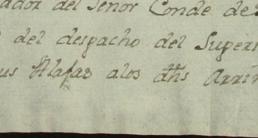 ador del Señor Conde de
del despacho del Superi
us Alajas alos dhs Arrin